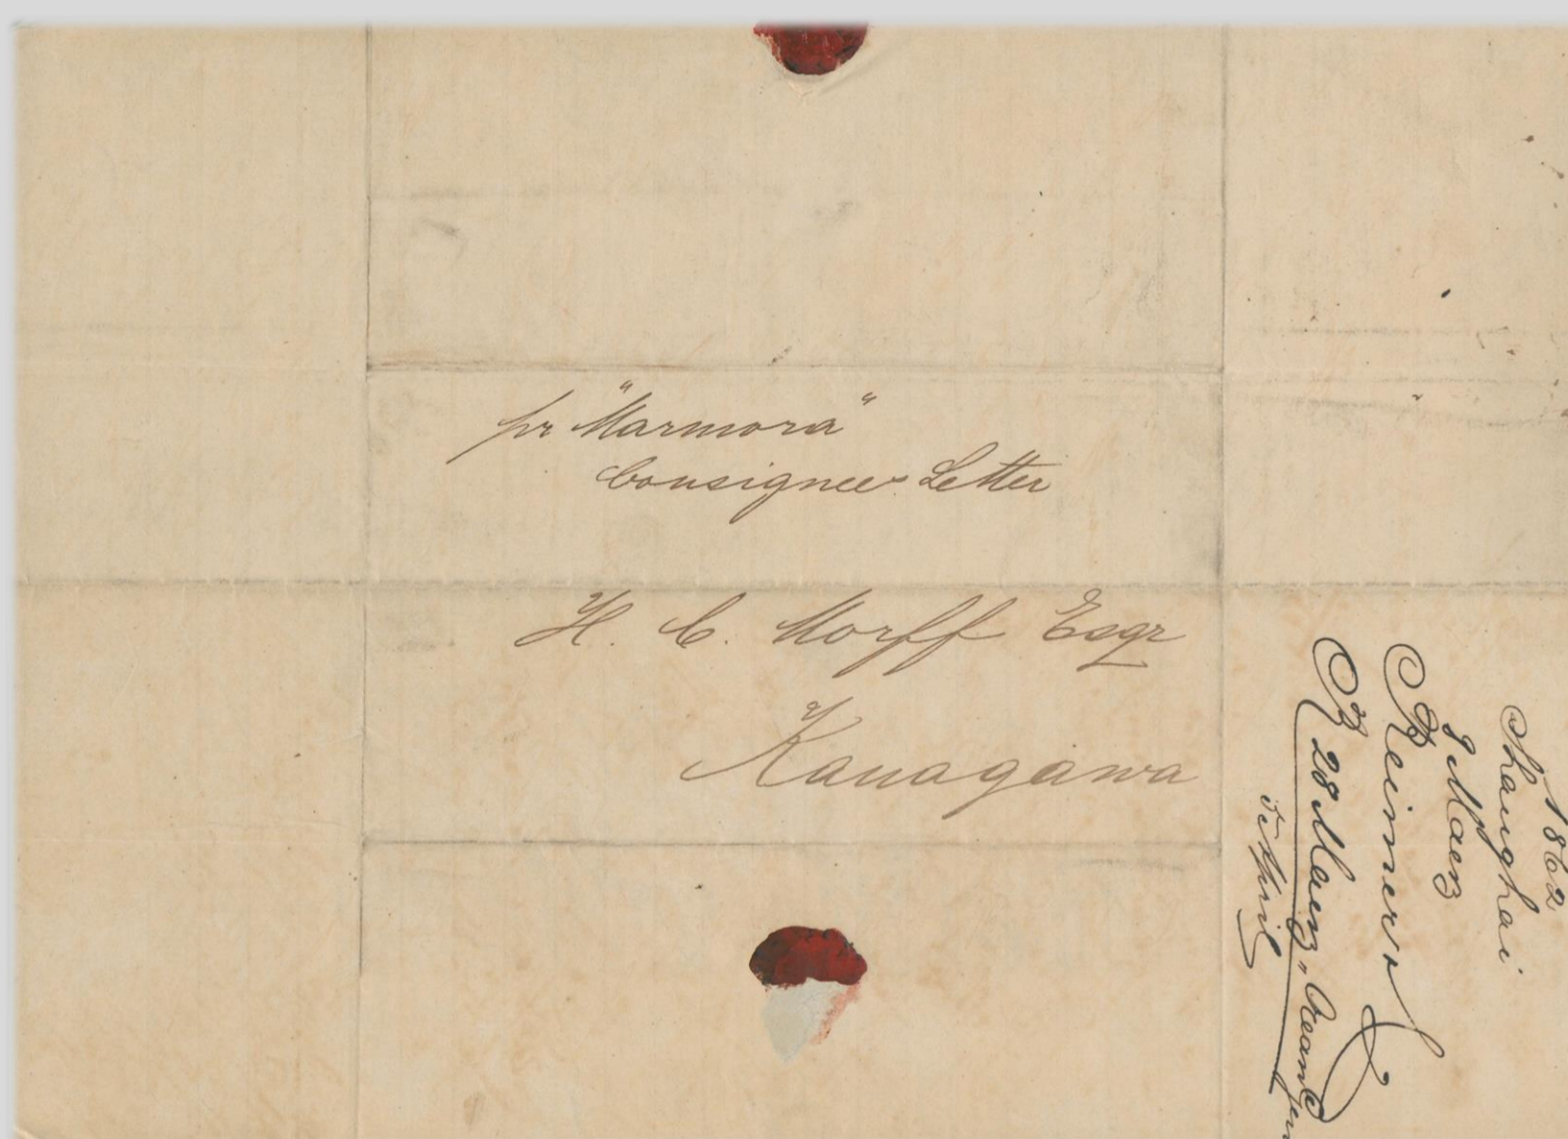 pr "Marmora"
Consignees Letter
H. C. Morff Esqr
Kanagawa
1862
Shanghai
9 Maerz
Reimers
R 28 Maerz,